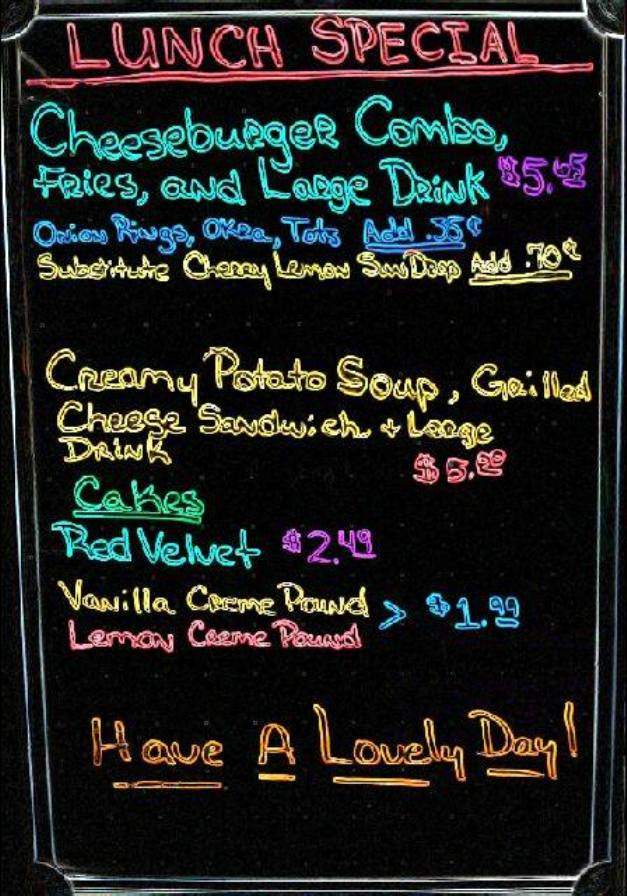 LUNCH SPECIAL
Cheeseburger Combo,
Fries, and Large Drink $5.45
Onion Rings, Okra, Tots Add .35¢
Substitute Cherry Lemon Sun Drop Add .70¢
Creamy Potato Soup, Grilled
Cheese Sandwich + Large
Drink
$5.20
Cakes
Red Velvet $2.49
Vanilla Creme Pound > $1.99
Lemon Creme Pound
Have A Lovely Day!